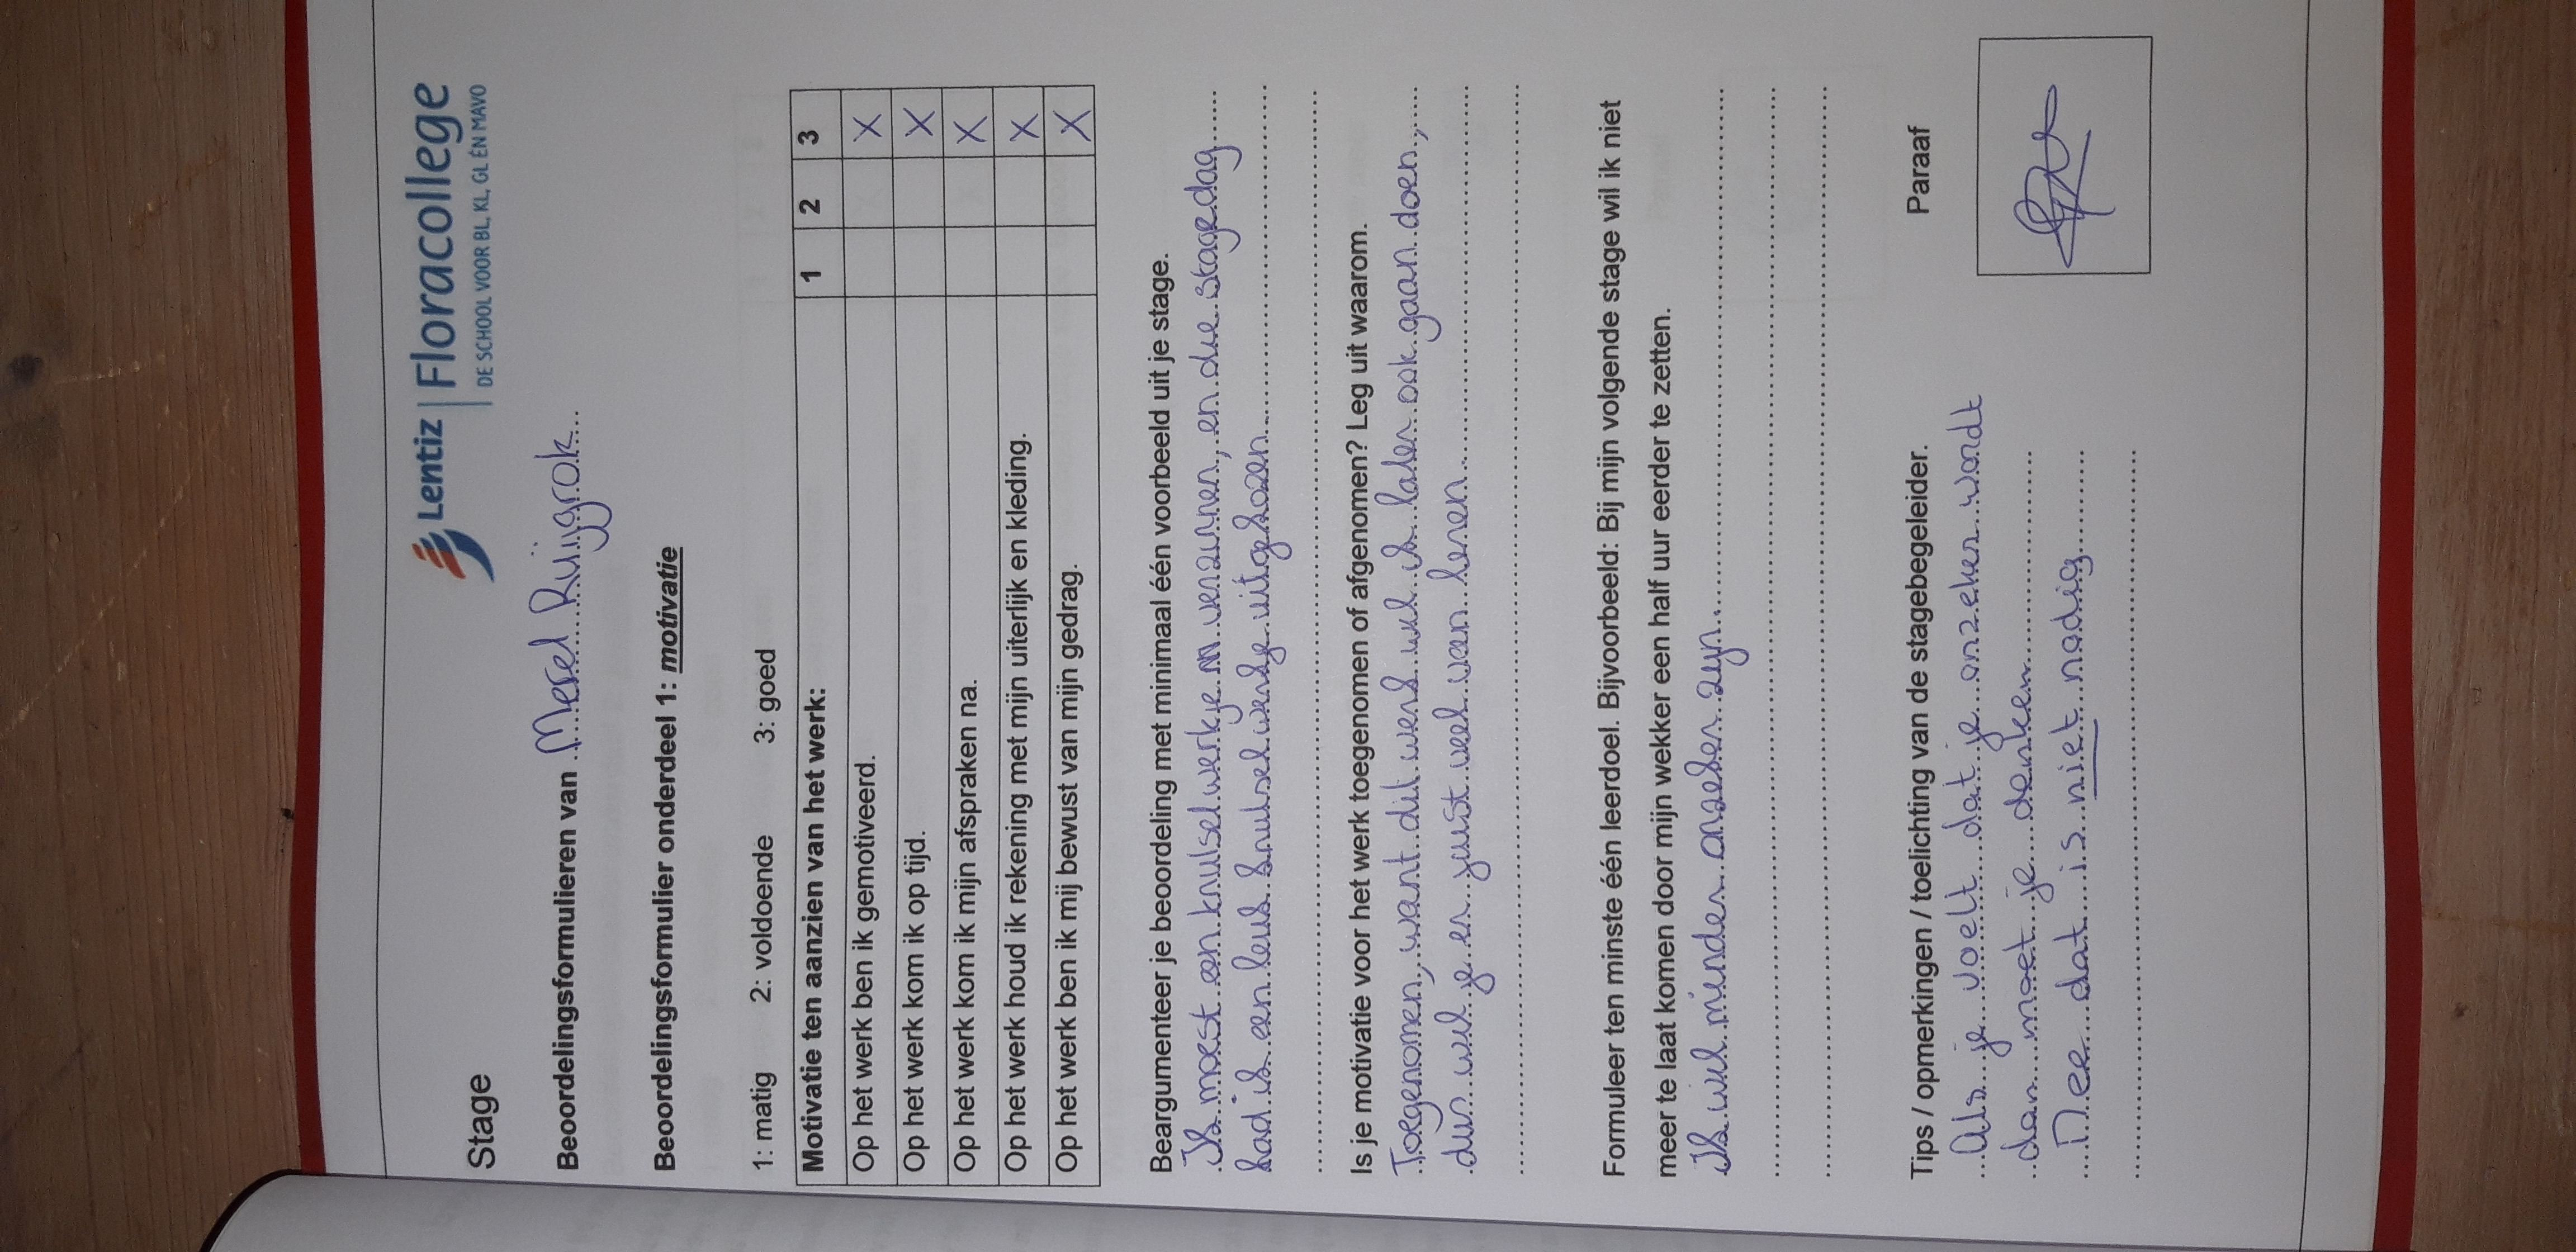 Lentiz | Floracollege
DE SCHOOL VOOR BL, KL, GL ÉN MAVO
Stage
Beoordelingsformulieren van Merel Ruijgrok
Beoordelingsformulier onderdeel 1: motivatie
1: matig 2: voldoende 3: goed
Motivatie ten aanzien van het werk: 1 2 3
Op het werk ben ik gemotiveerd. X
Op het werk kom ik op tijd. X
Op het werk kom ik mijn afspraken na. X
Op het werk houd ik rekening met mijn uiterlijk en kleding. X
Op het werk ben ik mij bewust van mijn gedrag. X
Beargumenteer je beoordeling met minimaal één voorbeeld uit je stage.
Ik moest een knutselwerkje verzinnen, en die stagedag
had ik een leuk knutselwerkje uitgekozen
Is je motivatie voor het werk toegenomen of afgenomen? Leg uit waarom.
Toegenomen, want dit werk wil ik later ook gaan doen,
dus wil je er juist veel van leren
Formuleer ten minste één leerdoel. Bijvoorbeeld: Bij mijn volgende stage wil ik niet
meer te laat komen door mijn wekker een half uur eerder te zetten.
Ik wil minder onzeker zijn.
Tips / opmerkingen / toelichting van de stagebegeleider. Paraaf
Als je voelt dat je onzeker wordt
dan moet je denken
Nee dat is niet nodig